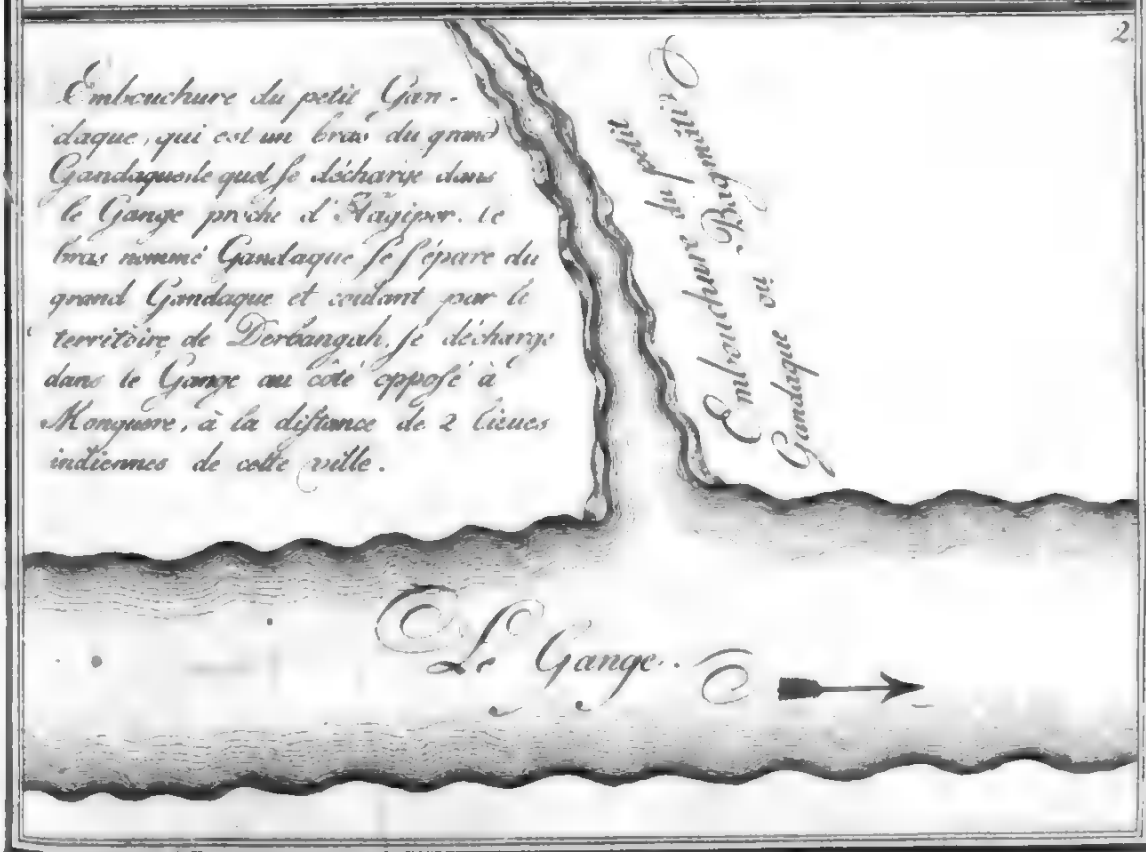 2.
Embouchure du petit Gan-
daque, qui est un bras du grand
Gandaque le quel se décharge dans
le Gange proche d'Hagipor. Le
bras nommé Gandaque se sépare du
grand Gandaque et coulant par le
territoire de Derbangah, se décharge
dans le Gange au coté opposé à
Monguere, à la distance de 2 lieues
indiennes de cette ville.
Embouchure du petit
Gandaque ou Bagmăti
Le Gange.